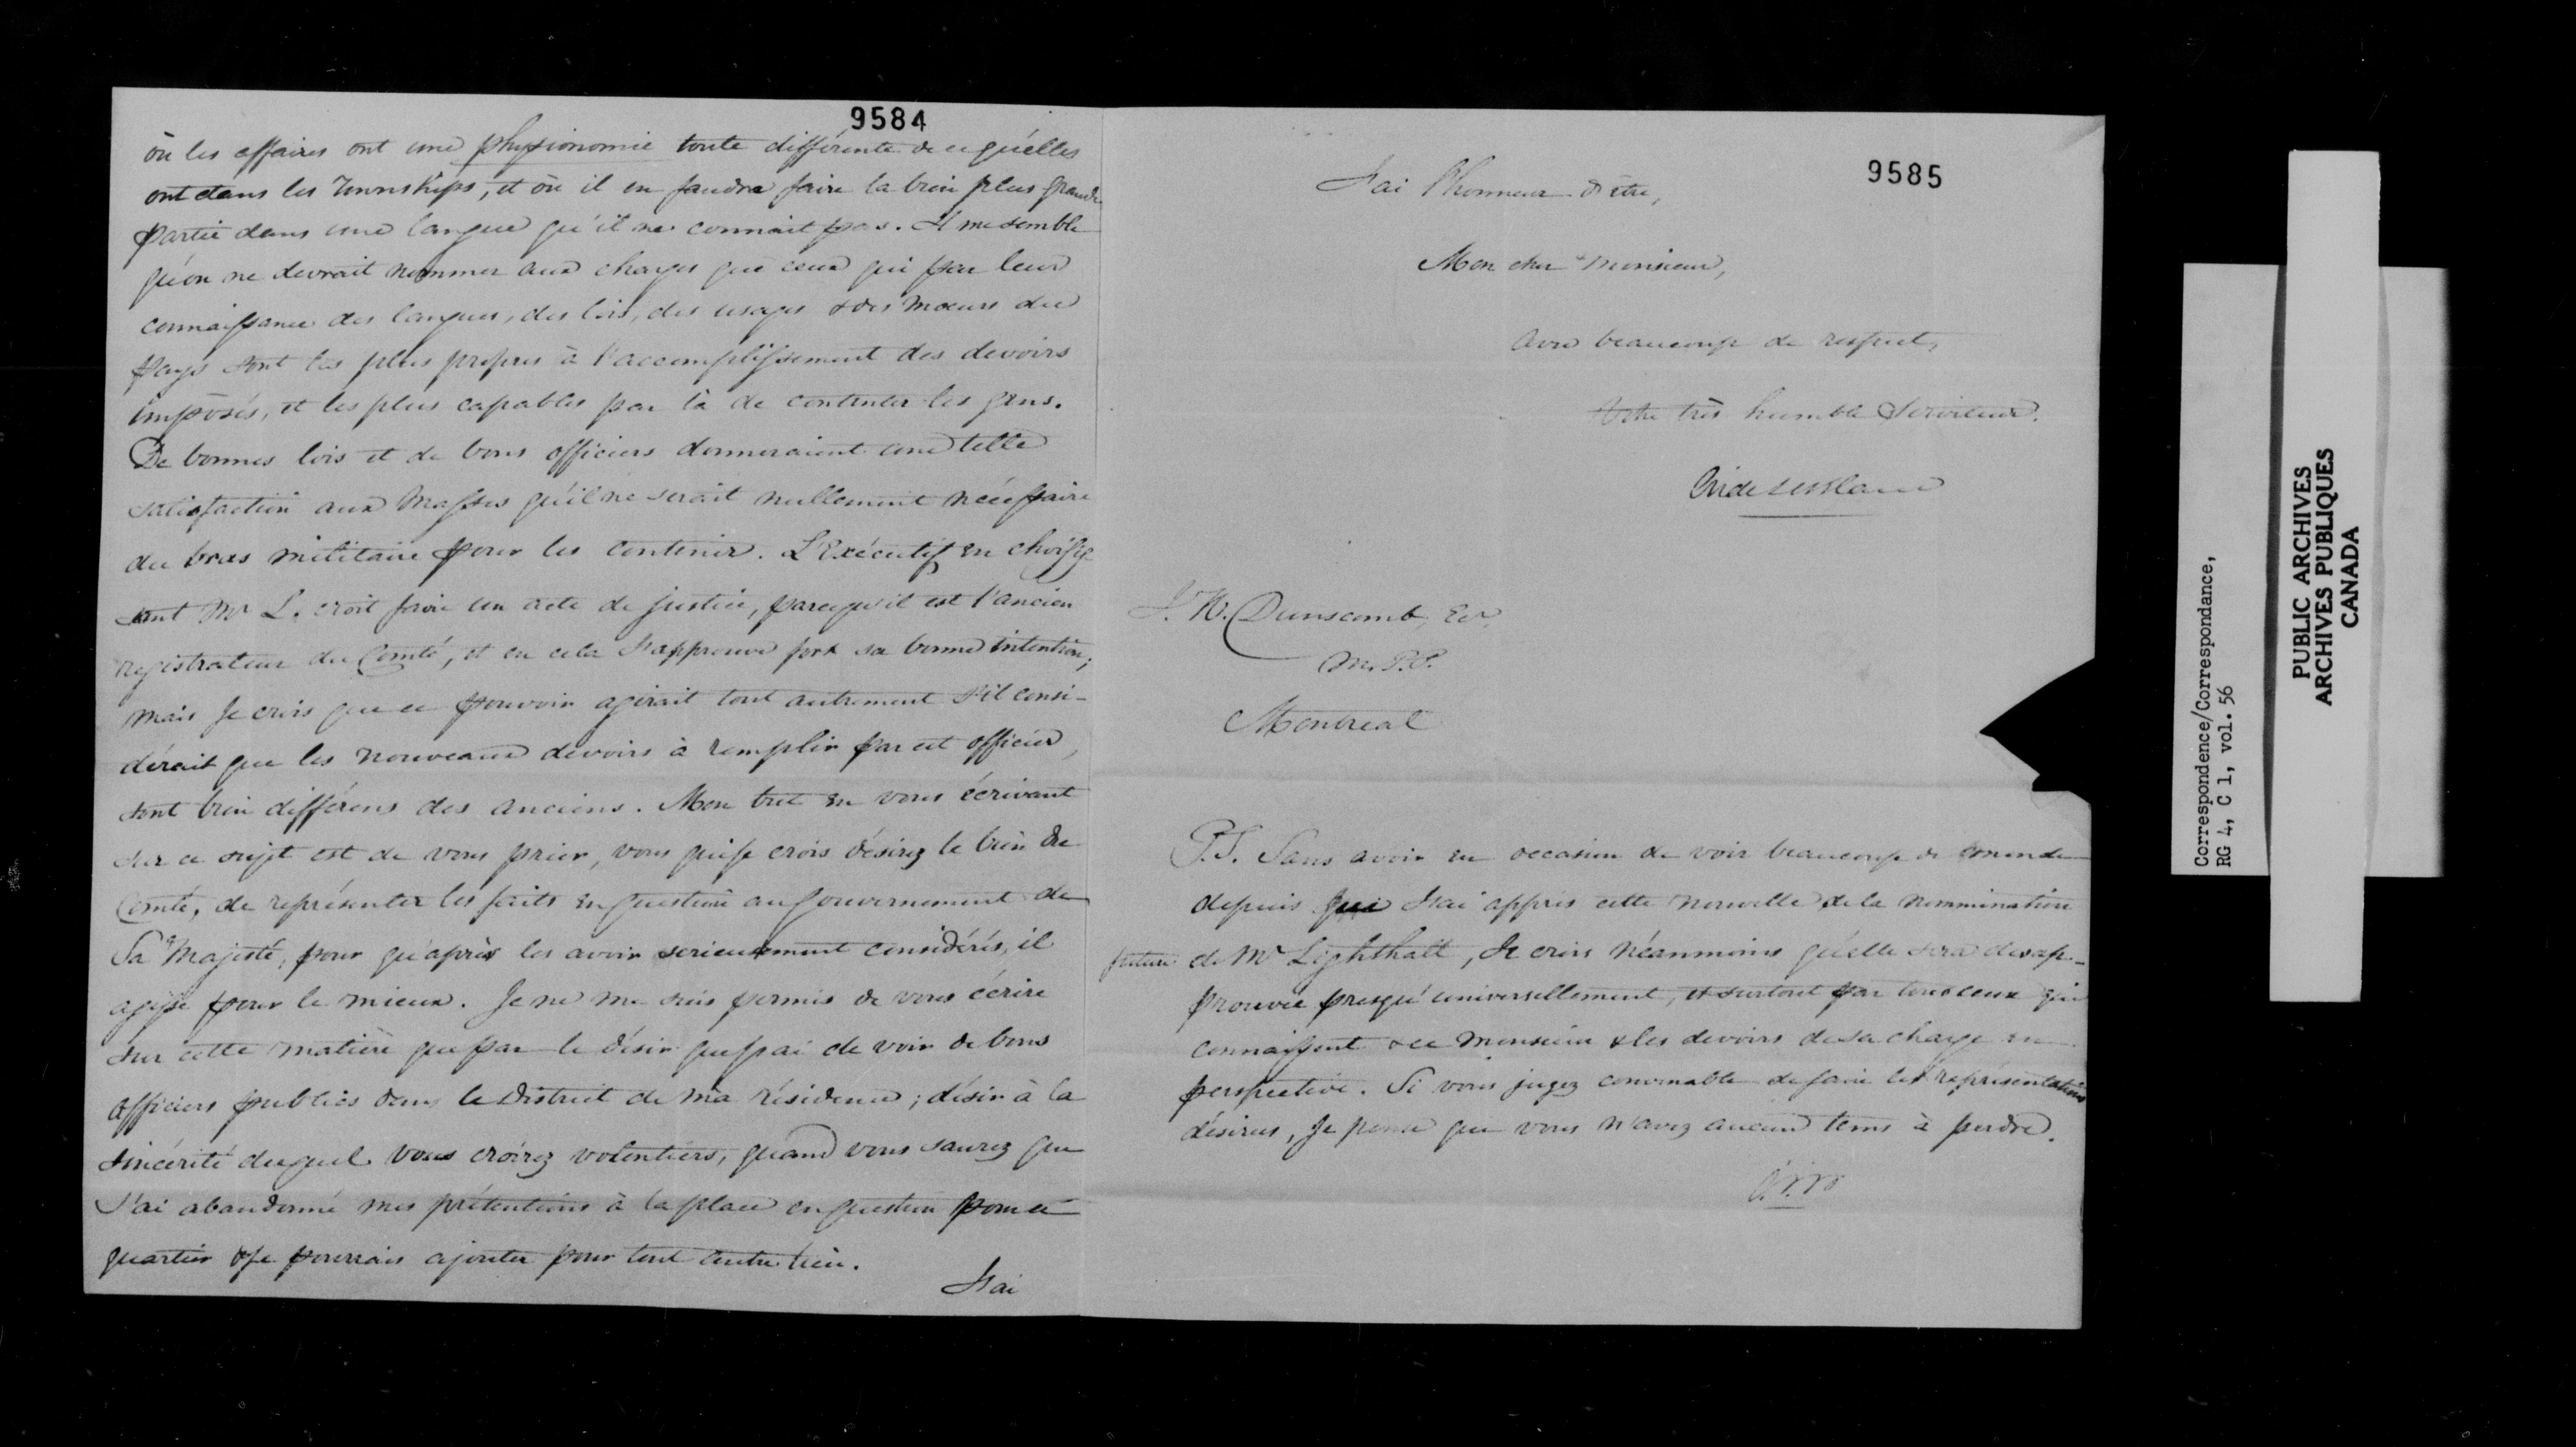 9584
où les affaires ont une physionomie toute différente de ce qu'elles
ont dans les Townships, et où il en faudra faire la bien plus grande
partie dans une langue qu'il ne connait pas. Il me semble
qu'on ne devrait nommer aux charges que ceux qui par leur
connaissance des langues, des lois, des usages & des mœurs du
pays sont les plus propres à l'accomplissement des devoirs
imposés, et les plus capables par là de contenter les gens.
De bonnes lois et de bons officiers donneraient une telle
satisfaction aux masses qu'il ne serait nullement nécessaire
du bras militaire pour les contenir. L'Exécutif en choisis-
sant Mr L. croit faire un acte de justice, parcequ'il est l'ancien
registrateur du Comté, et en cela J'approuve fort sa bonne intention;
mais Je crois que ce pouvoir agirait tout autrement s'il consi-
dérait que les nouveaux devoirs à remplir par cet officier,
sont bien différens des anciens. Mon but en vous écrivant
sur ce sujet est de vous prier, vous que je crois désirez le bien du
Comté, de représenter les faits en question au Gouvernement de
Sa Majesté, pour qu'après les avoir serieusement considérés, il
agisse pour le mieux. Je ne me suis permis de vous écrire
sur cette matière que par le désir que j'ai de voir de bons
officiers publics dans le District de ma résidence; désir à la
sincérité duquel vous croirez volontiers, quand vous saurez que
J'ai abandonné mes prétentions à la place en question pour ce
quartier & je pourrais ajouter pour tout autre lieu.
J'ai
9585
J'ai l'honneur d'être,
Mon cher Monsieur,
Avec beaucoup de respect,
Votre très humble Serviteur.
Ovide LeBlanc
J. W. Dunscomb, Ecr.
M.P.P.
Montreal
P.S. Sans avoir eu occasion de voir beaucoup de monde
depuis que J'ai appris cette nouvelle de la nommination
future de Mr Lighthall, Je crois néanmoins qu'elle sera desap-
prouvée presqu'universellement, et surtout par tous ceux qui
connaissent & ce Monsieur & les devoirs de sa charge en
perspective. Si vous jugez convenable de faire les représentations
désirées, Je pense que vous n'avez aucun tems à perdre.
Correspondence/Correspondance,
RG 4, C 1, vol. 56
PUBLIC ARCHIVES
ARCHIVES PUBLIQUES
CANADA